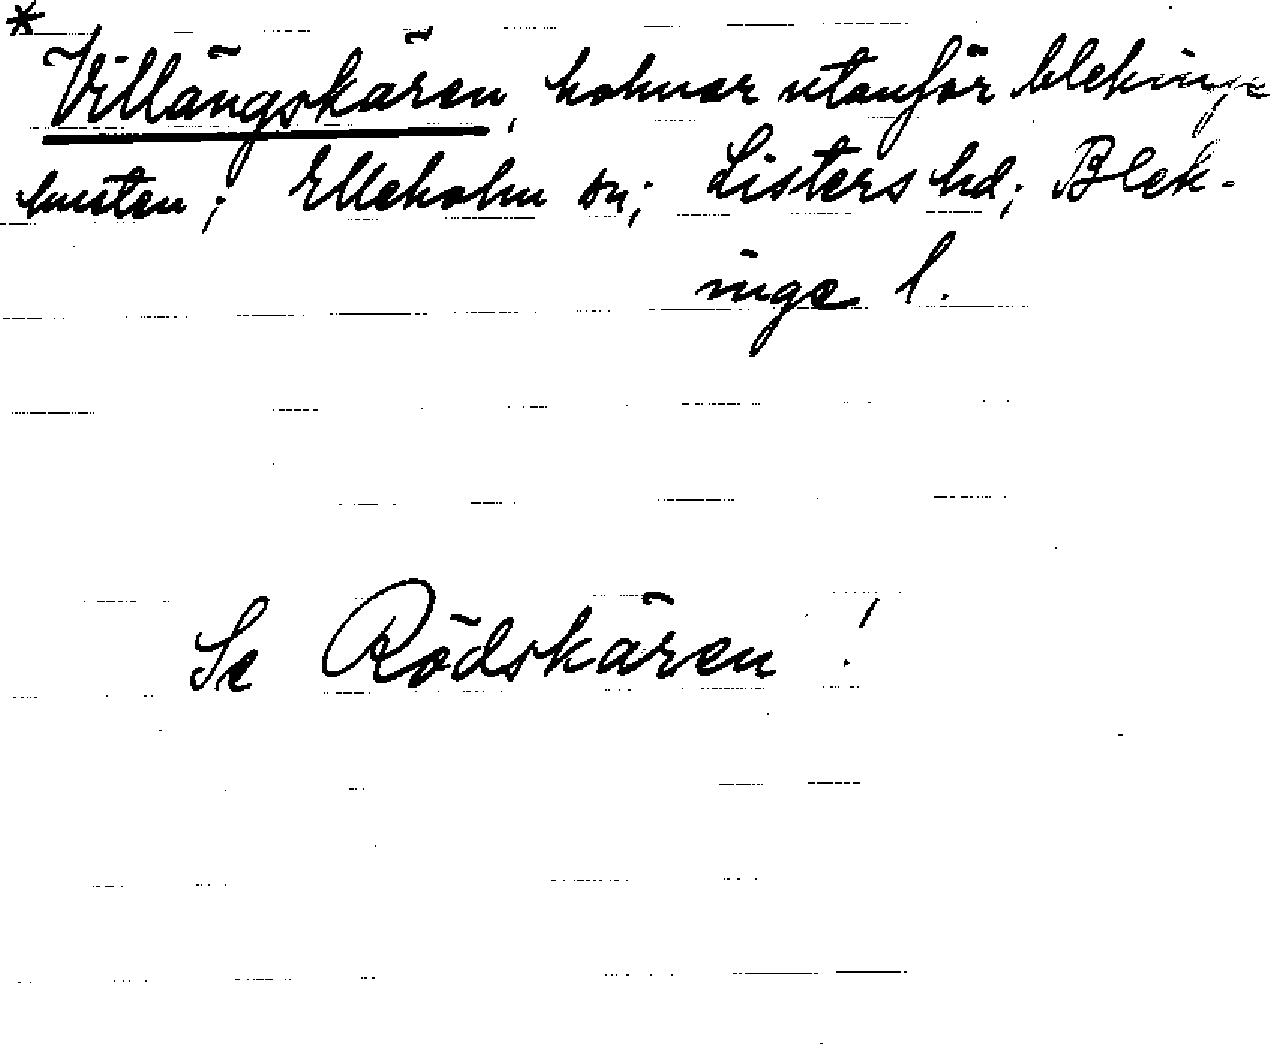 *
Villängskären, holmar utanför blekinge
kusten; Elleholm sn; Listers hd; Blek-
inge l.
Se Rödskären !